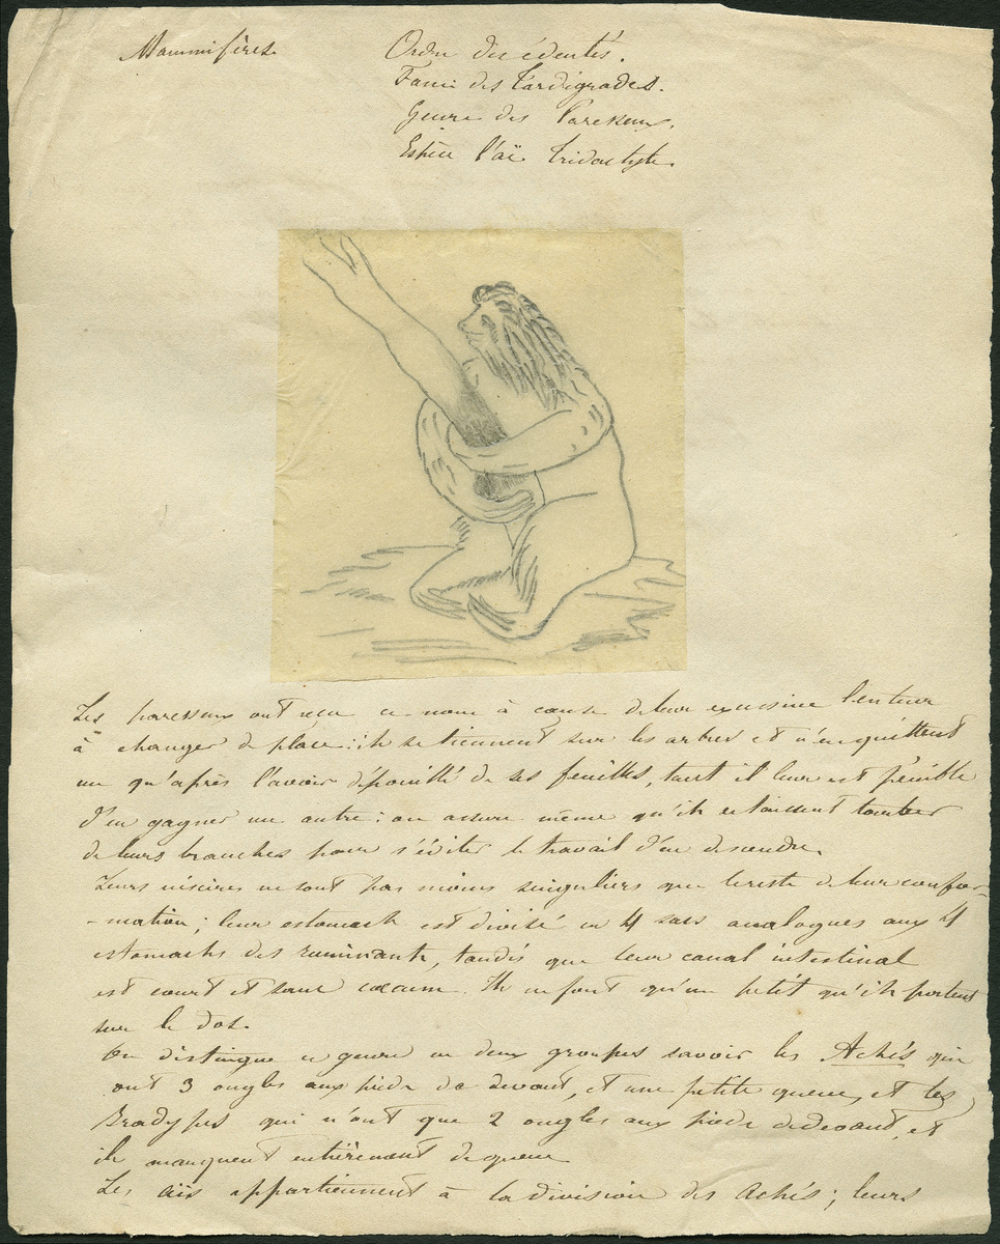 Mammifères
Ordre des édentés.
Fami. des Tardigrades.
Genre des Paresseux.
Espèce l'aï tridactyle.
Les paresseux ont reçu ce nom à cause de leur excessive lenteur
à changer de place: ils se tiennent sur les arbres et n'en quittent
un qu'après l'avoir dépouillé de ses feuilles, tant il leur est pénible
d'en gagner un autre: on assure même qu'ils se laissent tomber
de leurs branches pour s'éviter le travail d'en descendre.
Leurs viscères ne sont pas moins singuliers que le reste de leur confor-
-mation; leur estomach est divisé en 4 sacs analogues aux 4
estomachs des ruminants, tandis que leur canal intestinal
est court et sans cœcum. Ils ne font qu'un petit qu'ils portent
sur le dos.
On distingue ce genre en deux groupes savoir les Achés qui
ont 3 ongles aux pieds de devant, et une petite queue, et les
Bradypes qui n'ont que 2 ongles aux pieds de devant, et
ils manquent entièrement de queue
Les aïs appartiennent à la division des Achés; leurs